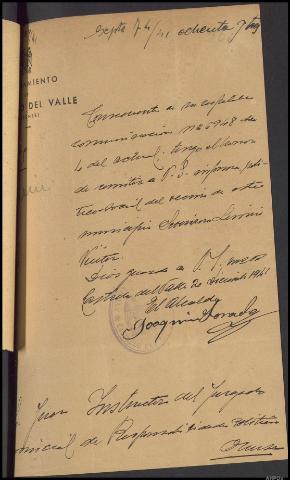 Expte 74/41
AMIENTO
O DEL VALLE
Consecuente a su respetable
comunicación nº 5948 de
4 del actual, tengo el honor
de remitir a V.S. informe poli-
tico social del vecino de este
municipio
Victor.
Dios guarde a V.S. m. as
Castrelo del Valle 20 Diciembre 1941
El Alcalde
Joaquin Dorado
Juez Instructor del Juzgado
vincial de Responsabilidades Politicas
Orense